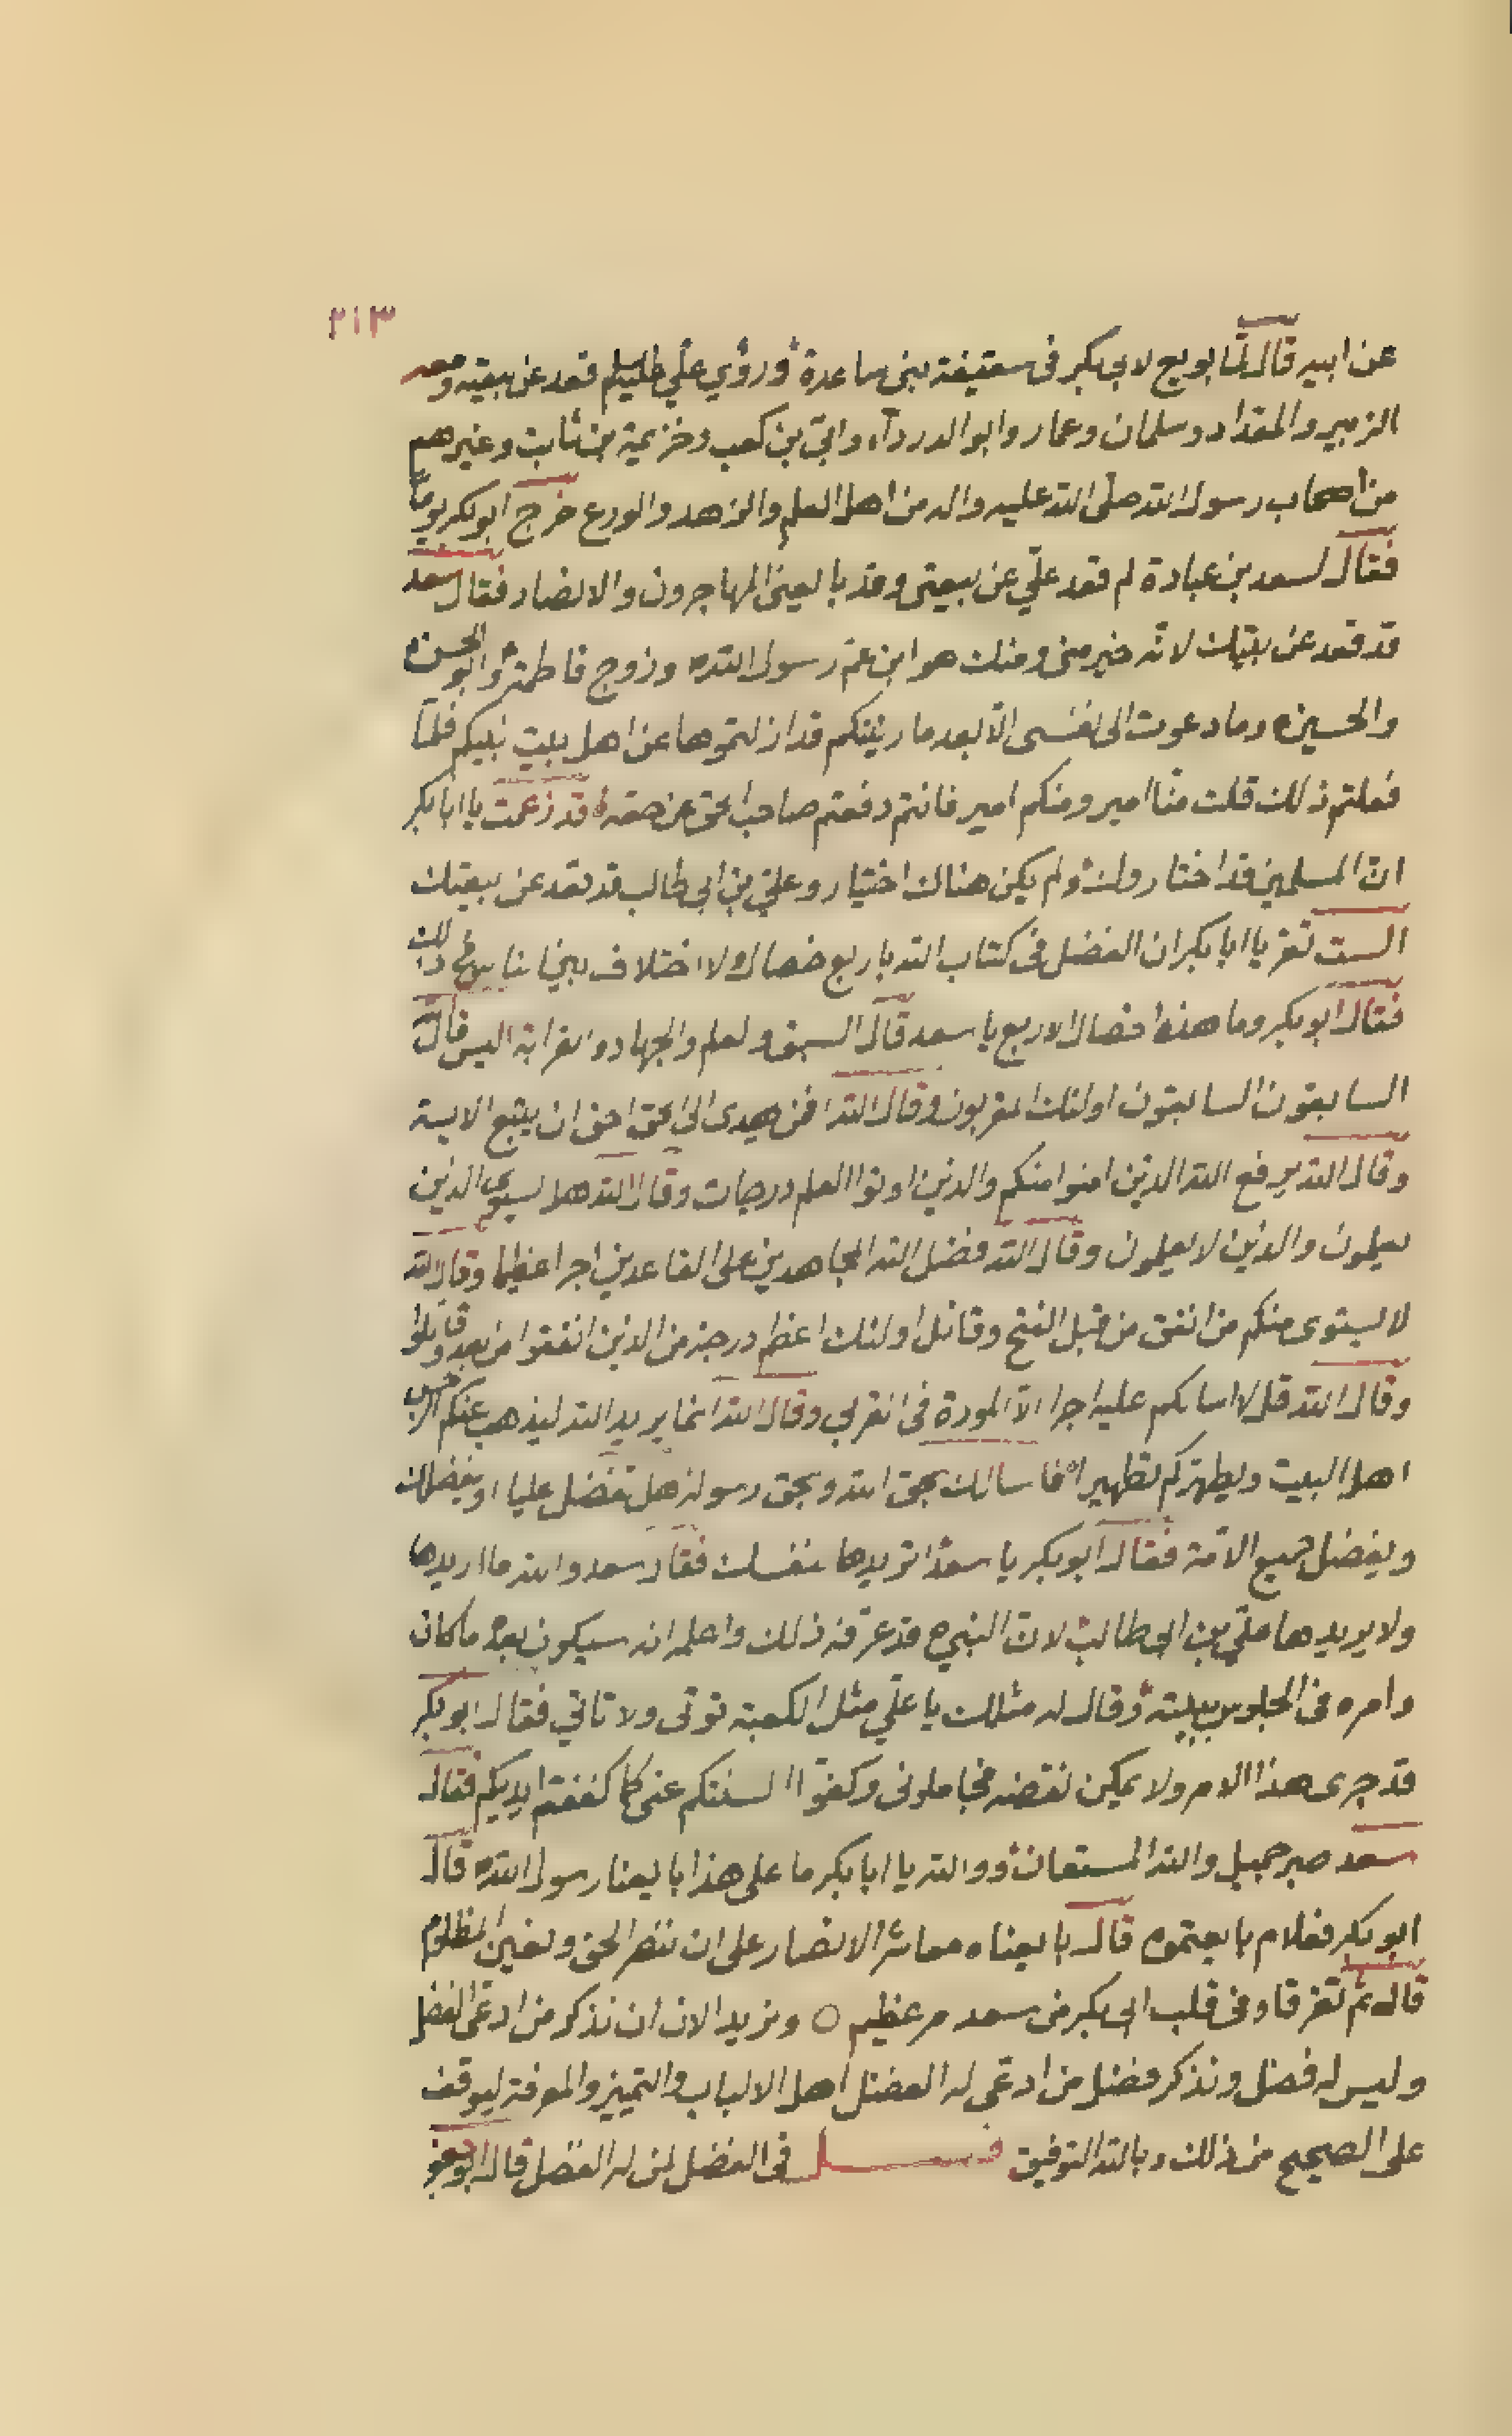 ٢١٣
عن ابيه قال لما بويع لابي بكر في سقيفة بني ساعدة ورؤي علي عليه السلم قعد عن بيعته ومعه
الزبير والمقداد وسلمان وعمار وابو الدرداء وابي بن كعب وخزيمة بن ثابت وغيرهم
من اصحاب رسول الله صلى الله عليه واله من اهل العلم والزهد والورع خرج ابو بكر يوما
فقال لسعد بن عبادة لم قعد علي عن بيعتي وقد بايعني المهاجرون والانصار فقال سعد
قد قعد عن بيعتك لانه خير مني ومنك هو ابن عم رسول الله ص وزوج فاطمة وابو الحسن
والحسين وما دعوت الى نفسى الا بعد ما رئيتكم قد ازلتموها عن اهل بيت نبيكم فلما
فعلتم ذلك قلت منا امير ومنكم امير فانتم دفعتم صاحب الحق عن حقه قد زعمت يا ابا بكر
ان المسلمين قد اختاروك ولم يكن هناك اختيار وعلي بن ابي طالب قد قعد عن بيعتك
الست تقر يا ابا بكر ان الفضل في كتاب الله باربع خصال ولا اختلاف بين الناس في ذلك
فقال ابو بكر وما هذه الخصال الاربع يا سعد قال السبق والعلم والجهاد والقرابة اليس قال الله
السابقون السابقون اولئك المقربون وقال الله افمن يهدى الى الحق احق ان يتبع الاية
وقال الله يرفع الله الذين امنوا منكم والذين اوتوا العلم درجات وقال الله هل يستوى الذين
يعلمون والذين لا يعلمون وقال الله فضل الله المجاهدين على القاعدين اجرا عظيما وقال الله
لا يستوى منكم من انفق من قبل الفتح وقاتل اولئك اعظم درجة من الذين انفقوا من بعد وقاتلوا
وقال الله قل لا اسالكم عليه اجرا الا المودة في القربى وقال الله انما يريد الله ليذهب عنكم الرجس
اهل البيت ويطهركم تطهيرا فاسالك بحق الله وبحق رسوله هل تفضل عليا او يفضلك
ويفضل جميع الامة فقال ابو بكر يا سعد اتريدها لنفسك فقال سعد والله ما اريدها
ولا يريدها علي بن ابي طالب لان النبي ص قد عرفه ذلك واعلمه انه سيكون بعده ما كان
وامره في الجلوس ببيته وقال له مثلك يا علي مثل الكعبة توتى ولا تاتي فقال ابو بكر
قد جرى هذا الامر ولا يمكن نقضه فجاملونى وكفوا السنتكم عنى كما كففتم ايديكم فقال
سعد صبر جميل والله المستعان ووالله يا ابا بكر ما على هذا بايعنا رسول الله ص قال
ابو بكر فعلام بايعتموه قال بايعناه معاشر الانصار على ان ننصر الحق ونعين المظلوم
قال ثم تفرقا وفى قلب ابى بكر من سعد مر عظيم ○ ونريد الان ان نذكر من ادعى الفضل
وليس له فضل ونذكر فضل من ادعى له الفضل اهل الالباب والتمييز والمعرفة ليوقف
على الصحيح من ذلك وبالله التوفيق فصل في الفضل لمن له الفضل قال ابو جعفر